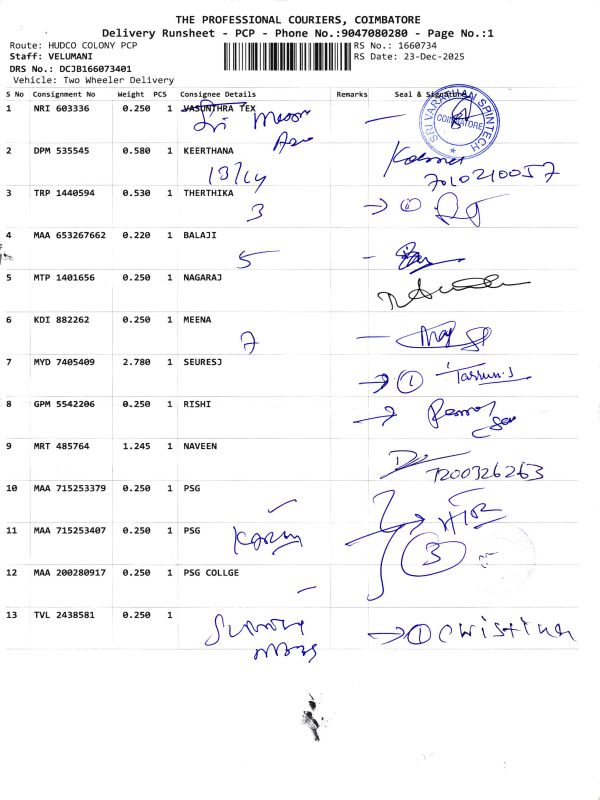 THE PROFESSIONAL COURIERS, COIMBATORE
Delivery Runsheet - PCP - Phone No.:9047080280 - Page No.:1
Route: HUDCO COLONY PCP RS No.: 1660734
Staff: VELUMANI RS Date: 23-Dec-2025
DRS No.: DCJB166073401
Vehicle: Two Wheeler Delivery
S No Consignment No Weight PCS Consignee Details Remarks Seal & Signature
1 NRI 603336 0.250 1 VASUNTHRA TEX
SRI VARATHAN SPINTECH
COIMBATORE
2 DPM 535545 0.580 1 KEERTHANA
13/14 7010210057
3 TRP 1440594 0.530 1 THERTHIKA
3
4 MAA 653267662 0.220 1 BALAJI
5
5 MTP 1401656 0.250 1 NAGARAJ
6 KDI 882262 0.250 1 MEENA
7
7 MYD 7405409 2.780 1 SEURESJ
1 Tarrun.s
8 GPM 5542206 0.250 1 RISHI
9 MRT 485764 1.245 1 NAVEEN
7200326263
10 MAA 715253379 0.250 1 PSG
11 MAA 715253407 0.250 1 PSG
3
12 MAA 200280917 0.250 1 PSG COLLGE
13 TVL 2438581 0.250 1
1